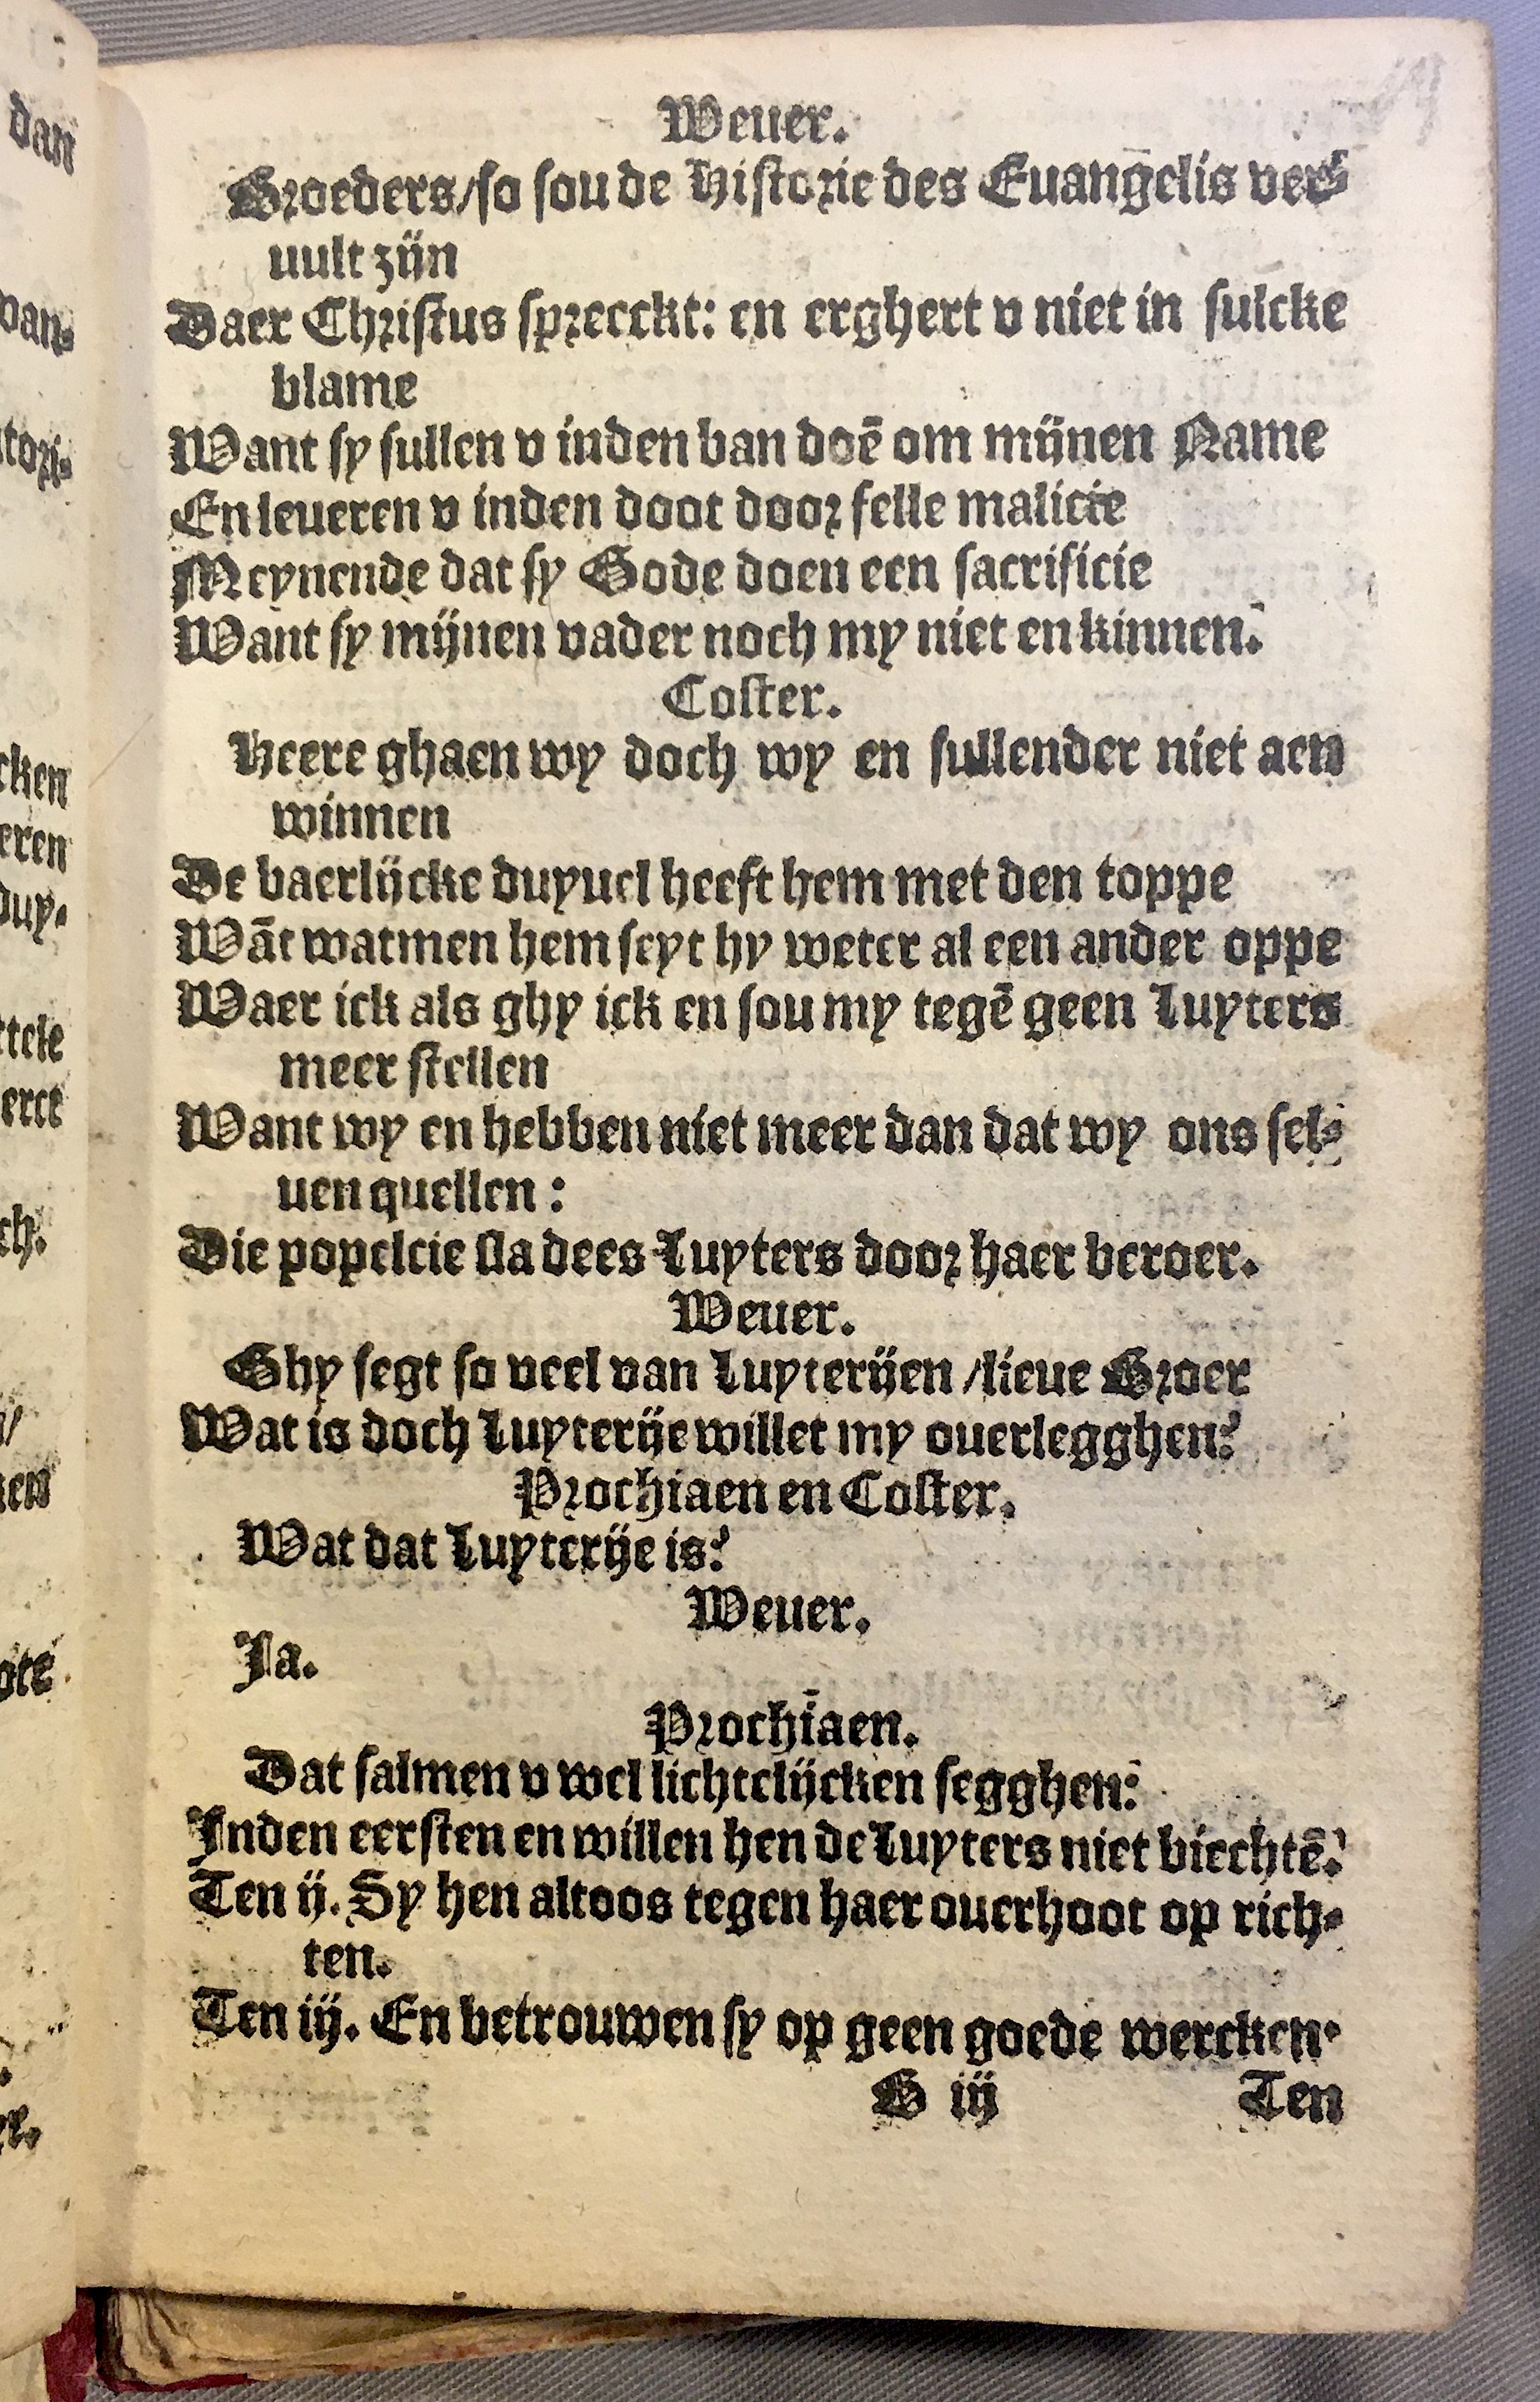 Weuer.
Broeders/so sou de Historie des Euangelis ver⸗
uult zijn
Daer Christus spreeckt: en erghert v niet in sulcke
blame
Want sy sullen v inden ban doē om mijnen Name
En leueren v inden doot door felle malicie
Meynende dat sy Gode doen een sacrificie
Want sy mijnen vader noch my niet en kinnen.
Coster.
Heere ghaen wy doch wy en sullender niet aen
winnen
De baerlijcke duyuel heeft hem met den toppe
Wāt watmen hem seyt hy weter al een ander oppe
Waer ick als ghy ick en sou my tegē geen Luyters
meer stellen
Want wy en hebben niet meer dan dat wy ons sel⸗
uen quellen:
Die popelcie sla dees Luyters door haer beroer.
Weuer.
Ghy segt so veel van Luyterijen/lieue Broer
Wat is doch Luyterije willet my ouerlegghen?
Prochiaen en Coster.
Wat dat Luyterije is?
Weuer.
Ja.
Prochiaen.
Dat salmen v wel lichtelijcken segghen:
Inden eersten en willen hen de Luyters niet biechtē.
Ten ij. Sy hen altoos tegen haer ouerhoot op rich⸗
ten.
Ten iij. En betrouwen sy op geen goede wercken.
B iij Ten
dan
van⸗
tori⸗
cken
eren
duy⸗
ttele
erct
ch.